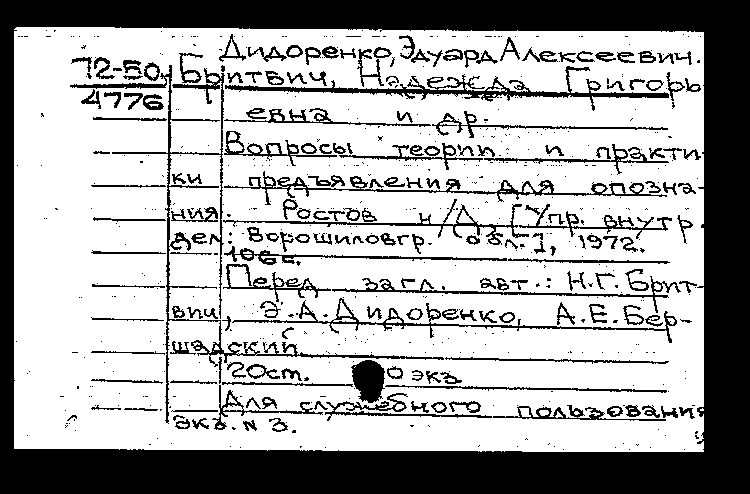 Дидоренко, Эдуард Алексеевич.
72-50 Бритвич, Надежда Григорь
4776
евна и др.
Вопросы теории и практи-
ки предъявления для опозна-
ния. Ростов н/Д, [Упр. внутр.
дел: Ворошиловгр. обл.], 1972.
106 с.
Перед загл. авт.: Н.Г. Брит-
вич, Э.А. Дидоренко, А.Е. Бер-
шадский.
20cm. 0 экз
Для служебного пользования
Экз. N 3.